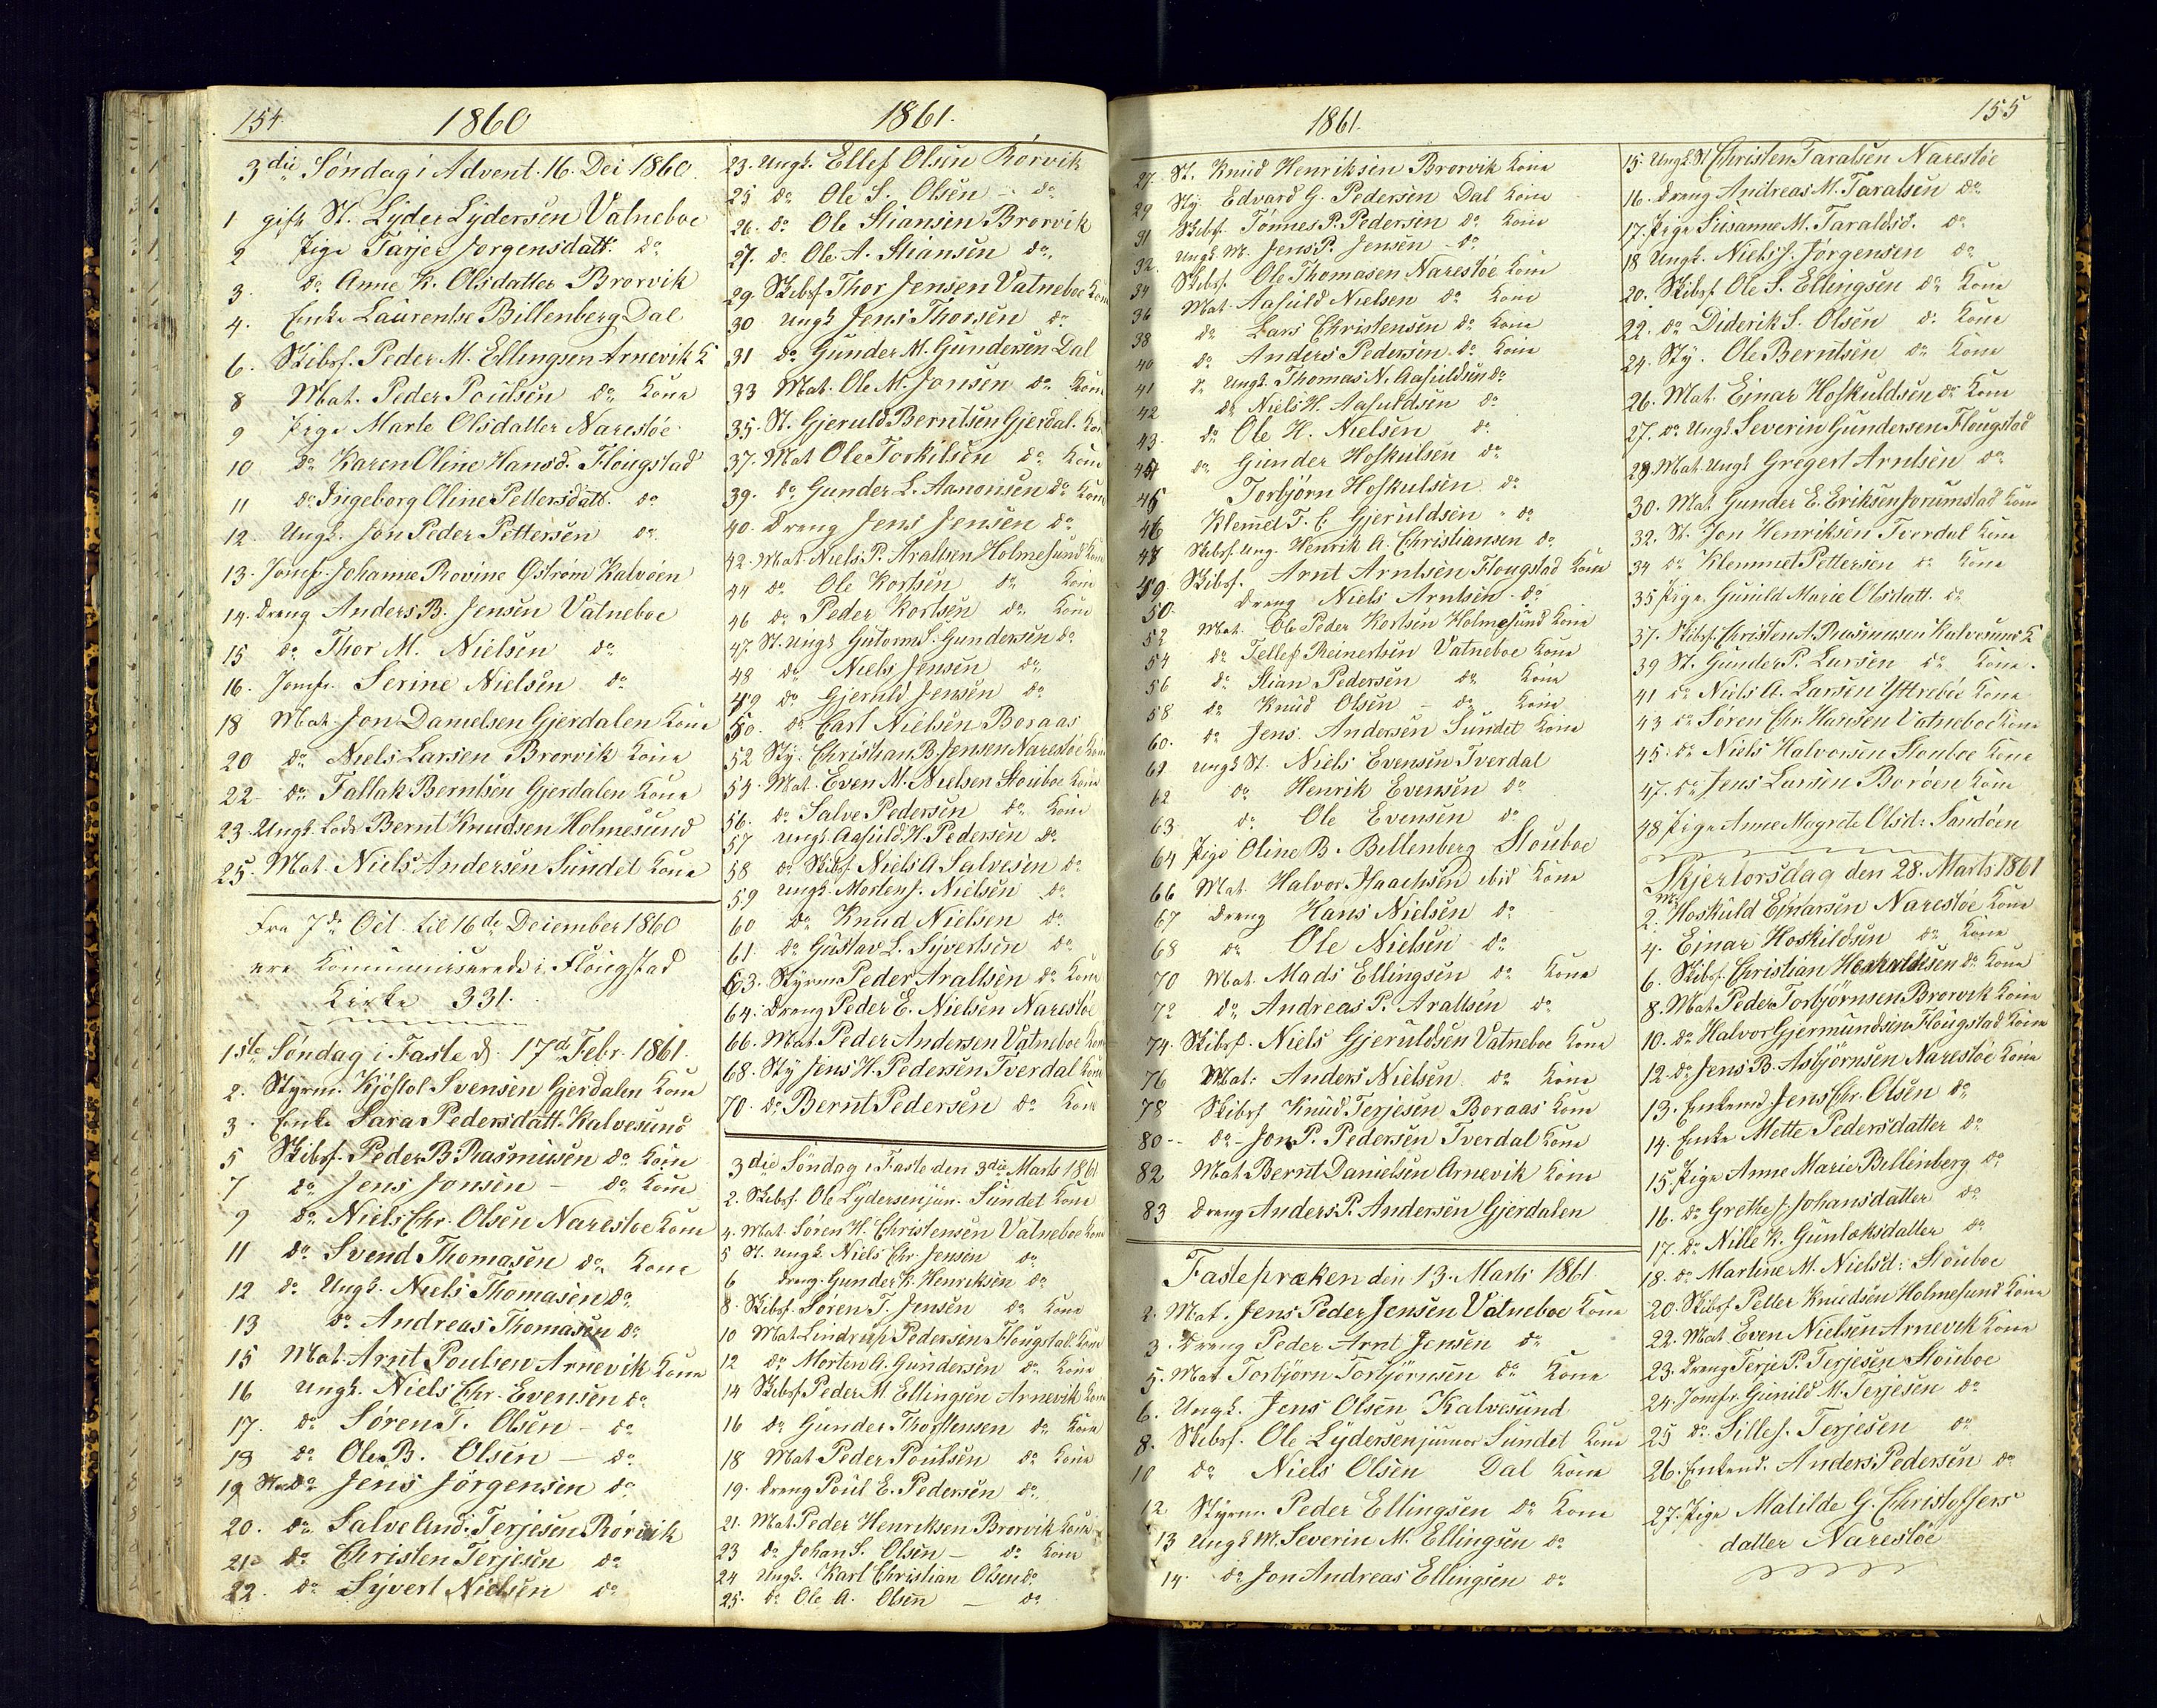 154. 1860
3die Söndag i Advent. 16. Dec 1860.
1 gift St. Lyder Lydersen Vatneboe
2 Pige Tarjer Jorgensdatt. do
3. do Anne K. Olsdatter Brorvik
4. Enke Laurentse Billenberg Dal
6. Skibsf. Peder M. Ellingsen Arnevik K
8 Mat. Peder Poulsen do Kone
9 Pige Marte Olsdatter Narestöe
10 do Karen Oline Hansd. Flougstad
11 do Ingeborg Oline Pettersdatt. do
12. Ungk. Jon Peder Pettersen do
13. Jomfr. Johanne Rovine Öström Kalvöen
14. Dreng Anders B. Jensen Vatneboe
15 do Thor M. Nielsen do
16. Jomfr. Serine Nielsen do
18 Mat. Jon Danielsen Gjerdalen Kone
20 do Niels Larsen Brorvik Kone
22 do Tallak Berntsen Gjerdalen Kone
23. Ungk. Lods Bernt Knudsen Holmesund
25. Mat. Niels Andersen Sundet Kone
Fra 7de Oct. til 16de December 1860
ere Kommunicerede i Flougstad
Kirke 331.
1ste Söndag i Faste d. 17d Febr. 1861.
2. Styrm. Kjöstol Svensen Gjerdalen Kone
3. Enke Sara Pedersdatt. Kalvesund
5 Skibsf. Peder B Rasmusen do Kone
7 do Jens Jonsen - do Kone
9 do Niels Chr. Olsen Narestoe Kone
11 do Svend Thomasen do Kone
12 do Ungk. Niels Thomasen do
13 do Andreas Thomasen do
15 Mat. Arnt Poulsen Arnevik Kone
16 Ungk. Niels Chr. Evensen do
17. do Sören T. Olsen - do
18 do Ole B. Olsen - do
19 do Jens Jörgensen do
20. do Salve And. Terjesen Rörvik
21 do Christen Terjesen do
22. do Syvert Nielsen do
1861.
23. Ungk. Ellef Olsen Rorvik
25 do Ole S. Olsen - do
26. do Ole Stiansen Brorvik
27. do Ole A. Stiansen do
29. Skibsf. Thor Jensen Vatneboe Kone
30 Ungk Jens Thorsen do
31 do Gunder M. Gundersen Dal
33 Mat. Ole M. Jonsen do Kone
35. St. Gjeruld Berntsen Gjerdal. Kone
37. Mat Ole Torkilsen do Kone
39. do Gunder L. Aanonsen do Kone
40. Dreng Jens Jensen do
42. Mat. Niels P. Aralsen Holmesund Kone
44 do Ole Kortsen do Kone
46 do Peder Kortsen do Kone
47. St. Ungk Gutorm S. Gundersen do
48 do Niels Jensen do
49 do Gjeruld Jensen do
50. do Carl Nielsen Boraas
52 Sty. Christian B. Jensen Narestöe Kone
54. Mat. Even M. Nielsen Stouboe Kone
56. do Salve Pedersen do Kone
57 Ungk. Aasuld H. Pedersen do
58 do Skibsf. Niels A Salvesen do
59 Ungk. Mortens. Nielsen do
60 do Knud Nielsen do
61. do Gustav L. Syvertsen do
63. Styrm Peder Araltsen do Kone
64. Dreng Peder E. Nielsen Narestöe
66. Mat. Peder Andersen Vatneboe Kone
68. Sty Jens H. Pedersen Tverdal Kone
70. do Bernt Pedersen do Kone
3die Söndag i Faste den 3die Marts 1861
2. Skibsf. Ole Lydersen jun. Sundet Kone
4. Mat. Sören H. Christensen Vatneboe Kone
5 St. Ungk. Niels Chr. Jensen do
6 Dreng. Gunder K. Henriksen do
8. Skibsf. Sören T. Jensen do Kone
10 Mat. Lindrup Pedersen Flougstad. Kone
12 do Morten A. Gundersen do Kone
14 Skibsf Peder M. Ellingsen Arnevik Kone
16 do Gunder Thorstensen do Kone
18 Mat Peder Poulsen do Kone
19. Dreng Poul E. Pedersen do
21. Mat. Peder Henriksen Brorvik Kone
23 do Johan S. Olsen - do Kone
24 Ungk. Karl Christian Olsen do
25. do Ole A. Olsen - do
1861.
27. St. Knud Henriksen Brorvik Kone
29 Sty. Edvard G. Pedersen Dal Kone
31 Skibsf. Tönnes P. Pedersen do Kone
32. Ungk M. Jens P. Jensen - do
34 Skibsf. Ole Thomasen Narestöe Kone
36 Mat. Aasuld Nielsen do Kone
38 do Lars Christensen do Kone
40 do Anders Pedersen do Kone
41 do Ungk. Thomas N. Aasuldsen do
42 do Niels H. Aasuldsen do
43. do Ole H. Nielsen do
44 do Gunder Hoskulsen do
45 Torbjörn Hoskulsen do
46 Klemet T. E. Gjeruldsen do
47 Skibsf. Ung. Henrik A. Christiansen do
49 Skibsf. Arnt Arntsen Flougstad Kone
50. Dreng Niels Arntsen do
52 Mat. Ole Peder Kortsen Holmesund Kone
54 do Tellef Reinertsen Vatneboe Kone
56 do Stian Pedersen do Kone
58 do Knud Olsen - do Kone
60. do Jens Andersen Sundet Kone
61 Ungk St. Niels Evensen Tverdal
62 do Henrik Evensen do
63 do Ole Evensen do
64 Pige Oline B. Bellenberg Stouboe
66 Mat. Halvor Haachsen ibid Kone
67 Dreng Hans Nielsen do
68 do Ole Nielsen do
70 Mat. Mads Ellingsen do Kone
72 do Andreas P. Araltsen do
74. Skibsf. Niels Gjeruldsen Vatneboe Kone
76 Mat: Anders Nielsen do Kone
78 Skibsf Knud Terjesen Boraas Kone
80 - do - Jon P. Pedersen Tverdal Kone
82 Mat Bernt Danielsen Arnevik Kone
83 Dreng Anders P. Andersen Gjerdalen
Fastepræken den 13. Marts 1861
2. Mat. Jens Peder Jensen Vatneboe Kone
3. Dreng Peder Arnt Jensen do
5. Mat Torbjörn Torbjörnsen do Kone
6. Ungk. Jens Olsen Kalvesund
8. Skibsf. Ole Lydersen junior Sundet Kone
10 do Niels Olsen Dal Kone
12 Styrm. Peder Ellingsen do Kone
13 Ungk M. Severin M. Ellingsen do
14. do Jon Andreas Ellingsen do
155
15. Ungk St Christen Taralsen Narestöe
16. Dreng Andreas M. Taralsen do
17. Pige Susanne M. Taraldsd. do
18 Ungk. Niels J. Jörgensen do
20. Skibsf. Ole S. Ellingsen do Kone
22. do Diderik S. Olsen do Kone
24. Sty. Ole Berntsen do Kone
26. Mat. Ejnar Hoskuldsen do Kone
27. do Ungk. Severin Gundersen Flougstad
28. Mat. Ungk Gregert Arntsen do
30. Mat. Gunder E. Eriksen Jorumstad Kone
32. St. Jon Henriksen Tverdal Kone
34 do Klemmet Pettersen do Kone
35 Pige Gunild Marie Olsdatt. do
37. Skibsf. Christen A. Rasmusen Kalvesund K
39 St. Gunder P. Larsen do Kone.
41 do Niels A. Larsen Yttreböe Kone
43 do Sören Chr. Hansen Vatneboe Kone
45. do Niels Halvorsen Stouboe Kone
47. do Jens Larsen Boröen Kone
48 Pige Anne Magrete Olsd: Sandöen
Skjertorsdag den 28. Marts 1861
2. Mat Hoskuld Ejnarsen Narestöe Kone
4. Ejnar Hoskildsen do Kone
6. Skibsf. Christian Hoskuldsen do Kone
8. Mat. Peder Torbjörnsen Brorvik Kone
10. do Halvor Gjermundsen Flougstad Kone
12. do Jens B. Asbjörnsen Narestöe Kone
13. Enkemd Jens Chr. Olsen do
14. Enke Mette Pedersdatter do
15. Pige Anne Marie Bellenberg do
16. do Grethe J. Johansdatter do
17. do Nille K. Gunlaksdatter do
18. do Martine M. Nielsd: Stouboe
20. Skibsf Petter Knudsen Holmesund Kone
22. Mat Even Nielsen Arnevik Kone
23. Dreng Terje P. Terjesen Stouboe
24. Jomfr. Gunild M. Terjesen do
25 do Sille J. Terjesen do
26. Enkemd. Anders Pedersen do
27. Pige Matilde G. Christoffers
datter Narestöe